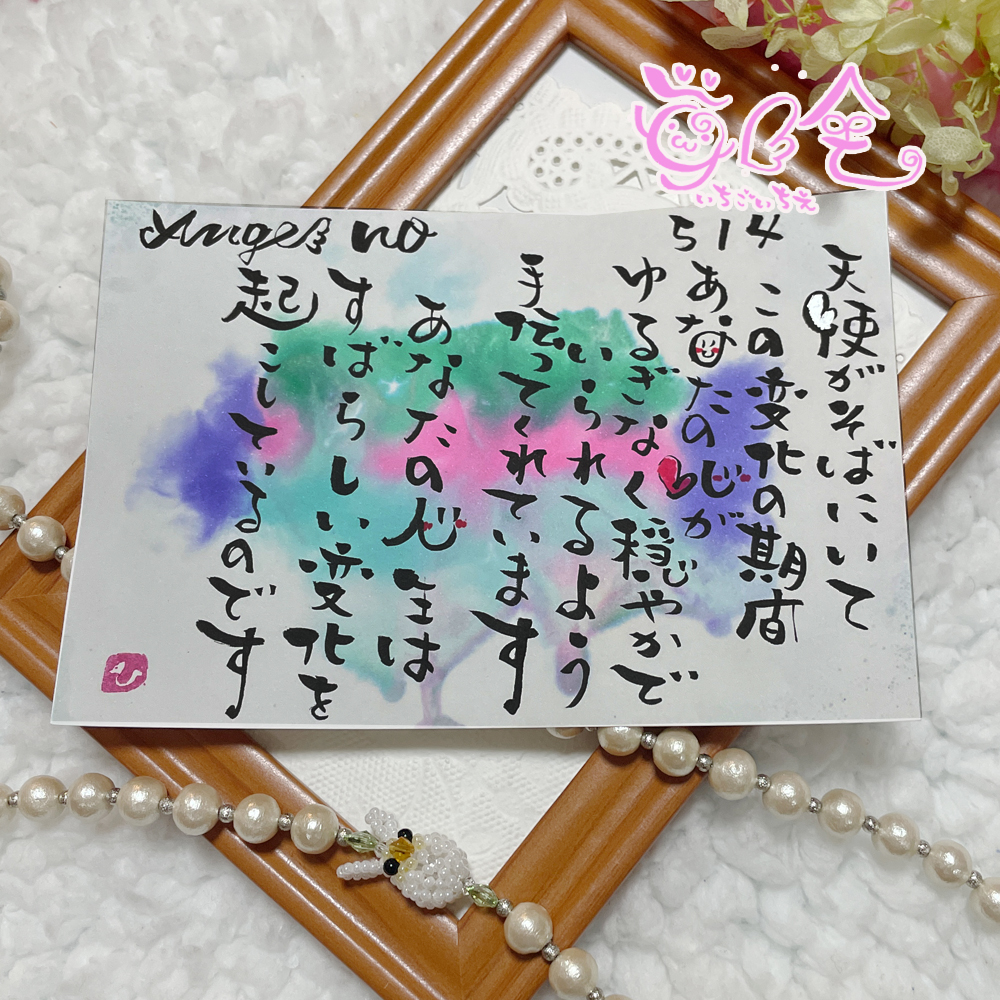 Angel's no 514
天使がそばにいて
この変化の期間
あなたの心が
ゆるぎなく穏やかで
いられるよう
手伝ってくれています
あなたの心は
すばらしい変化を
起こしているのです
いちごいちえ